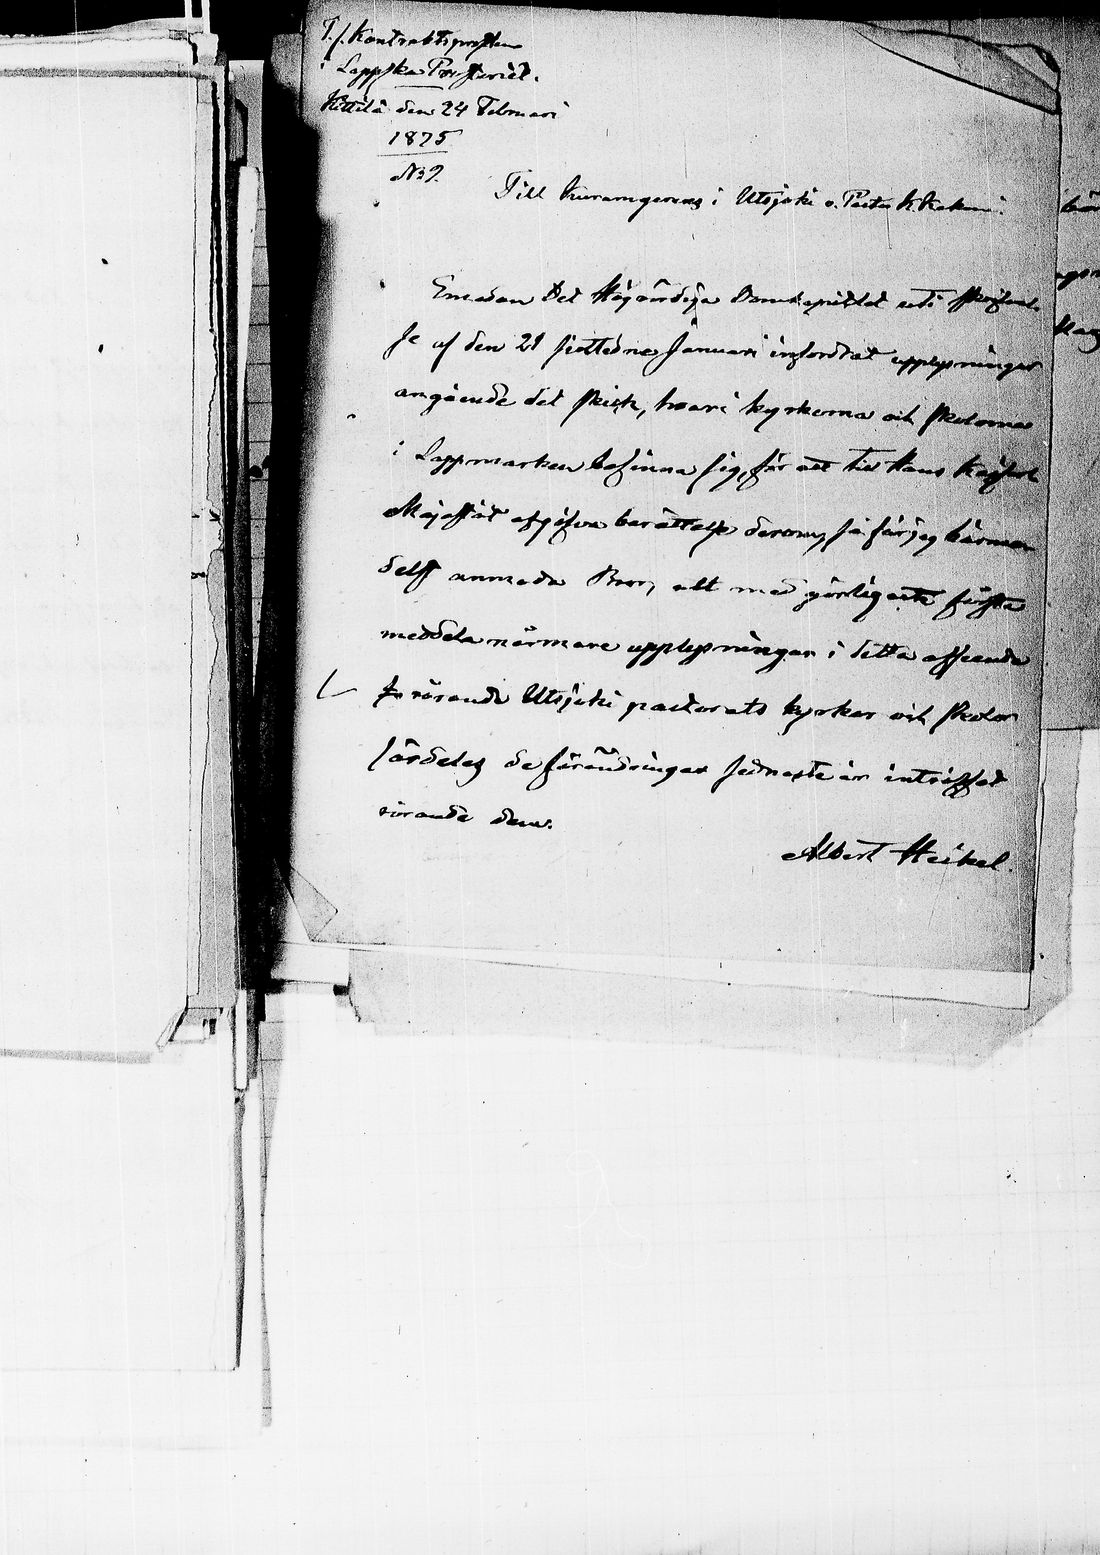 T. f. Kontraktsprosten
i Lappska Prosteriet.
Kittilä den 24 Februari
1875
No 9.
Till Kuramgerens i Utsjoki
Emedan Det Högvördiga Domkapitlet uti skrifvel-
se af den 21 sistledne Januari infordrat upplysningar
angående det skick, hvari kyrkorna och skolorna
i Lappmarken befinna sig, för att till Hans Kejserl
Majestät afgifva berättelse derom, så får jag härme-
delst anmoda Bror, att med görligaste första
meddela närmare upplysningar i detta afseende
rörande Utsjoki pastorats kyrkor och skolor
särdeles de förändringar sednaste år inträffat
rörande dem.
Albert Heikel.